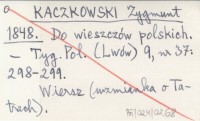 KACZKOWSKI Zygmunt
1848. Do wieszczów polskich.
— Tyg. Pol. (Lwów) 9, nr 37:
298-299.
Wiersz (wzmianka o Ta-
trach).